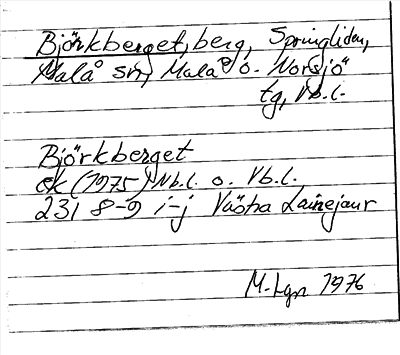 Björkberget, berg, Springliden,
Malå sn, Malå o. Norsjö
tg, Vb.l.
Björkberget
ek (1975) Nb.l. o. Vb.l.
23I 8-9 i-j Västra Lainejaur
M. Lgn 1976